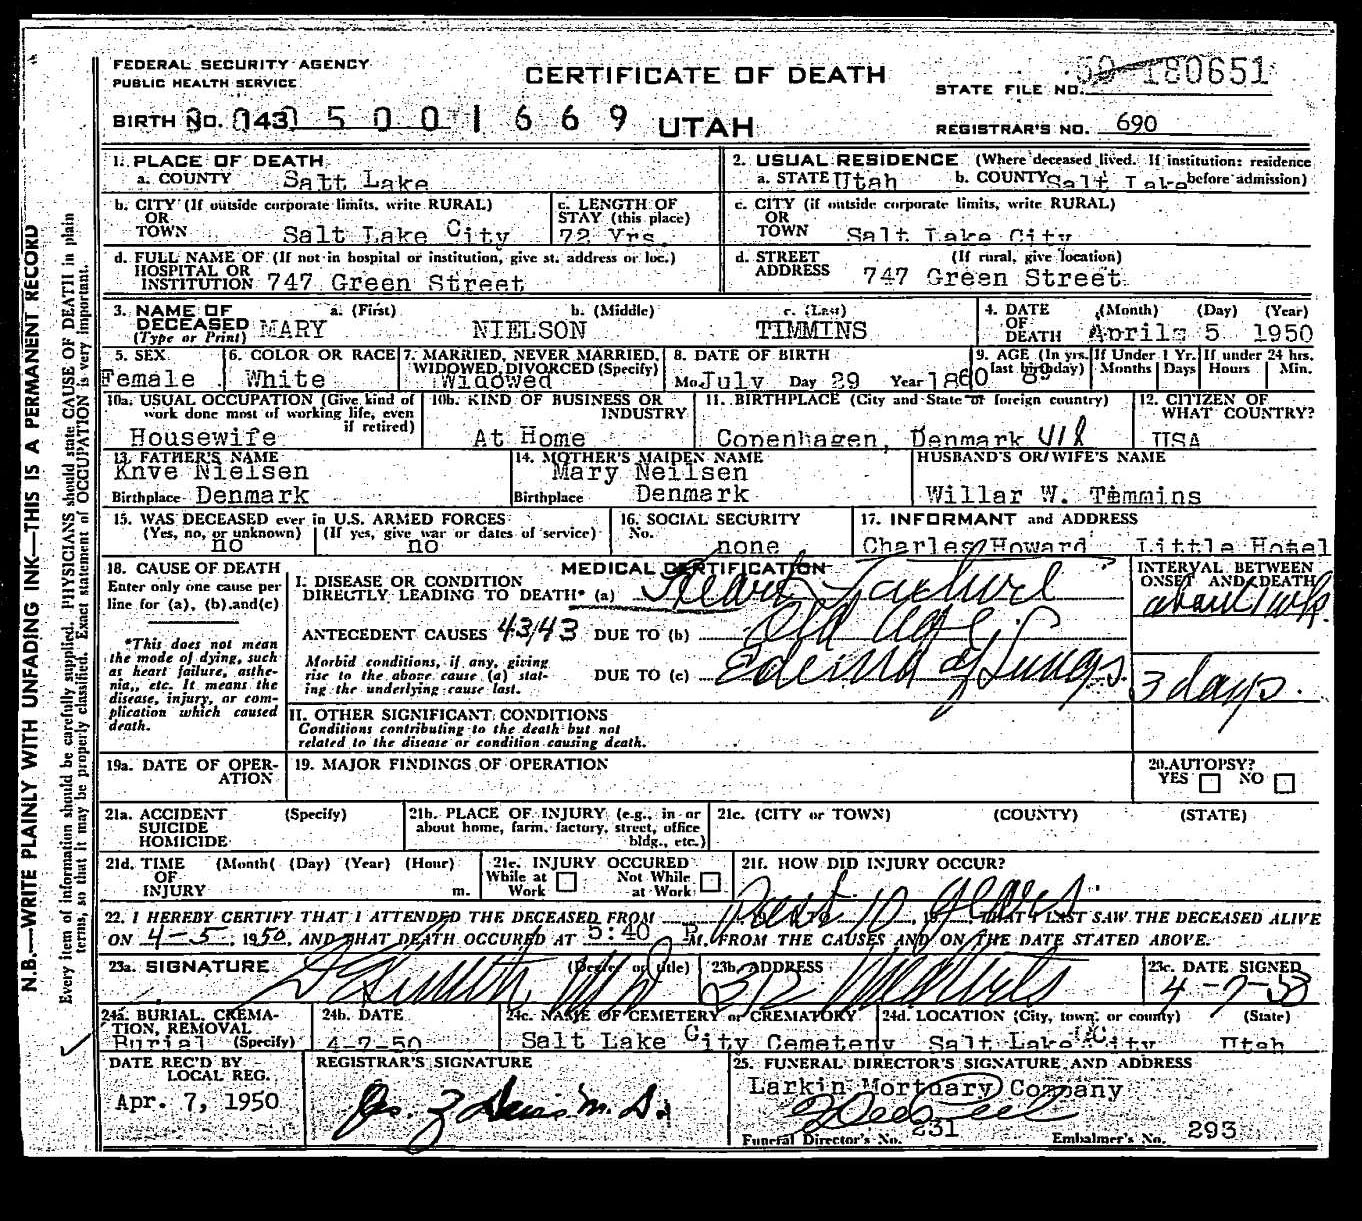 FEDERAL SECURITY AGENCY
PUBLIC HEALTH SERVICE
CERTIFICATE OF DEATH
STATE FILE NO. 50-180651
BIRTH NO. 143 5 0 0 1 6 6 9 UTAH
REGISTRAR'S NO. 690
1. PLACE OF DEATH
a. COUNTY Salt Lake
2. USUAL RESIDENCE (Where deceased lived. If institution: residence before admission)
a. STATE Utah b. COUNTY Salt Lake
b. CITY (If outside corporate limits, write RURAL) OR TOWN Salt Lake City
c. LENGTH OF STAY (this place) 72 Yrs.
c. CITY (if outside corporate limits, write RURAL) OR TOWN Salt Lake City
d. FULL NAME OF (If not in hospital or institution, give st. address or loc.) HOSPITAL OR INSTITUTION 747 Green Street
d. STREET ADDRESS (If rural, give location) 747 Green Street
3. NAME OF DECEASED (Type or Print) a. (First) MARY b. (Middle) NIELSON c. (Last) TIMMINS
4. DATE OF DEATH (Month) (Day) (Year) April 5 1950
5. SEX Female
6. COLOR OR RACE White
7. MARRIED, NEVER MARRIED, WIDOWED, DIVORCED (Specify) Widowed
8. DATE OF BIRTH Mo. July Day 29 Year 1860
9. AGE (In yrs. last birthday) 89
If Under 1 Yr. Months Days
If under 24 hrs. Hours Min.
10a. USUAL OCCUPATION (Give kind of work done most of working life, even if retired) Housewife
10b. KIND OF BUSINESS OR INDUSTRY At Home
11. BIRTHPLACE (City and State or foreign country) Copenhagen, Denmark
12. CITIZEN OF WHAT COUNTRY? USA
13. FATHER'S NAME Knve Nielsen
Birthplace Denmark
14. MOTHER'S MAIDEN NAME Mary Neilsen
Birthplace Denmark
HUSBAND'S OR WIFE'S NAME
Willar W. Timmins
15. WAS DECEASED ever in U.S. ARMED FORCES
(Yes, no, or unknown) no (If yes, give war or dates of service) no
16. SOCIAL SECURITY No. none
17. INFORMANT and ADDRESS
Charles Howard Little Hotel
18. CAUSE OF DEATH
Enter only one cause per line for (a), (b), and (c)
*This does not mean the mode of dying, such as heart failure, asthenia, etc. It means the disease, injury, or complication which caused death.
MEDICAL CERTIFICATION
I. DISEASE OR CONDITION DIRECTLY LEADING TO DEATH* (a) Heart Failure
ANTECEDENT CAUSES 4343 DUE TO (b) Old Age
Morbid conditions, if any, giving rise to the above cause (a) stating the underlying cause last.
DUE TO (c) Edema of Lungs.
INTERVAL BETWEEN ONSET AND DEATH
about 1 wk.
3 days.
II. OTHER SIGNIFICANT CONDITIONS
Conditions contributing to the death but not related to the disease or condition causing death.
19a. DATE OF OPERATION
19. MAJOR FINDINGS OF OPERATION
20. AUTOPSY?
YES NO
21a. ACCIDENT SUICIDE HOMICIDE (Specify)
21b. PLACE OF INJURY (e.g., in or about home, farm, factory, street, office bldg., etc.)
21c. (CITY or TOWN) (COUNTY) (STATE)
21d. TIME OF INJURY (Month( (Day) (Year) (Hour) m.
21e. INJURY OCCURED
While at Work Not While at Work
21f. HOW DID INJURY OCCUR?
22. I HEREBY CERTIFY THAT I ATTENDED THE DECEASED FROM Past 10 years, THAT I LAST SAW THE DECEASED ALIVE
ON 4-5, 1950, AND THAT DEATH OCCURED AT 5:40 P M. FROM THE CAUSES AND ON THE DATE STATED ABOVE.
23a. SIGNATURE (Degree or title)
23b. ADDRESS
23c. DATE SIGNED
24a. BURIAL, CREMATION, REMOVAL (Specify) Burial
24b. DATE 4-7-50
24c. NAME OF CEMETERY or CREMATORY Salt Lake City Cemetery
24d. LOCATION (City, town, or county) (State) Salt Lake City Utah
DATE REC'D BY LOCAL REG.
Apr. 7, 1950
REGISTRAR'S SIGNATURE
25. FUNERAL DIRECTOR'S SIGNATURE AND ADDRESS
Larkin Mortuary Company
Funeral Director's No. 231 Embalmer's No. 293
N.B.—WRITE PLAINLY WITH UNFADING INK—THIS IS A PERMANENT RECORD
Every item of information should be carefully supplied. PHYSICIANS should state CAUSE OF DEATH in plain
terms, so that it may be properly classified. Exact statement of OCCUPATION is very important.